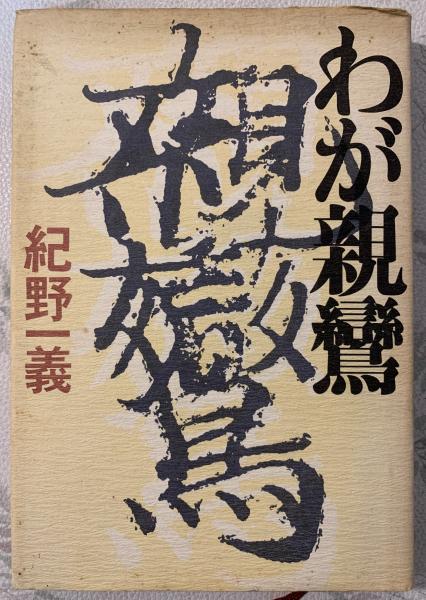 わが親鸞
親鸞
紀野一義